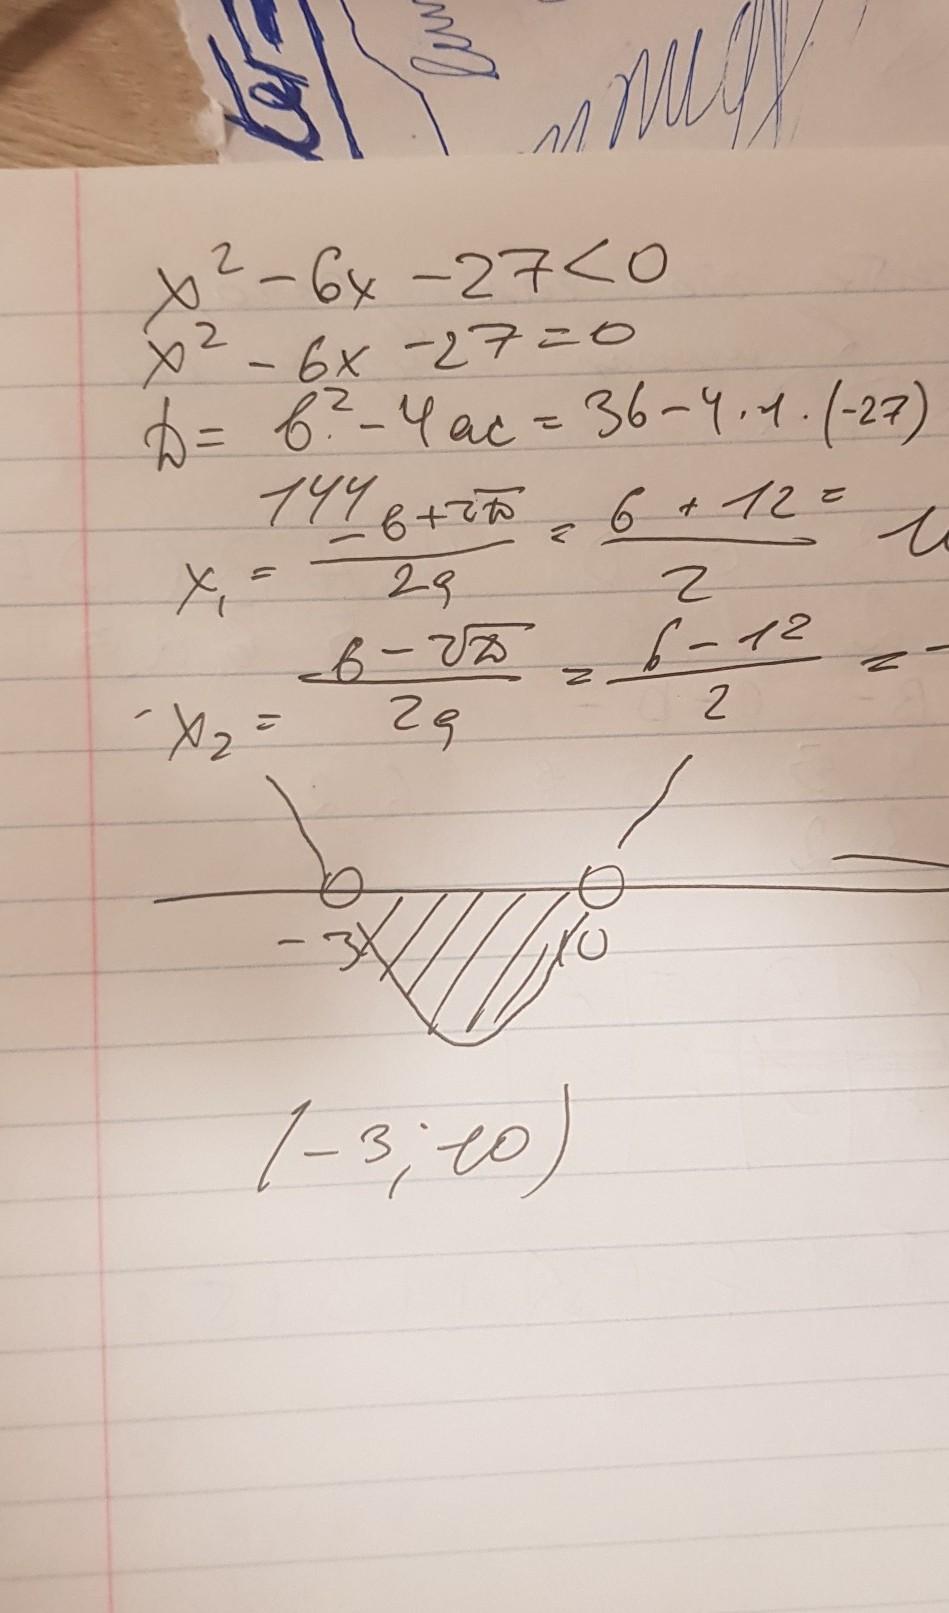 x² - 6x - 27 < 0
x² - 6x - 27 = 0
D = b² - 4ac = 36 - 4 · 1 · (-27)
144
x₁ = (-b + √D) / 2a = (6 + 12) / 2 =
x₂ = (-b - √D) / 2a = (6 - 12) / 2 = -
-3 10
(-3; 10)